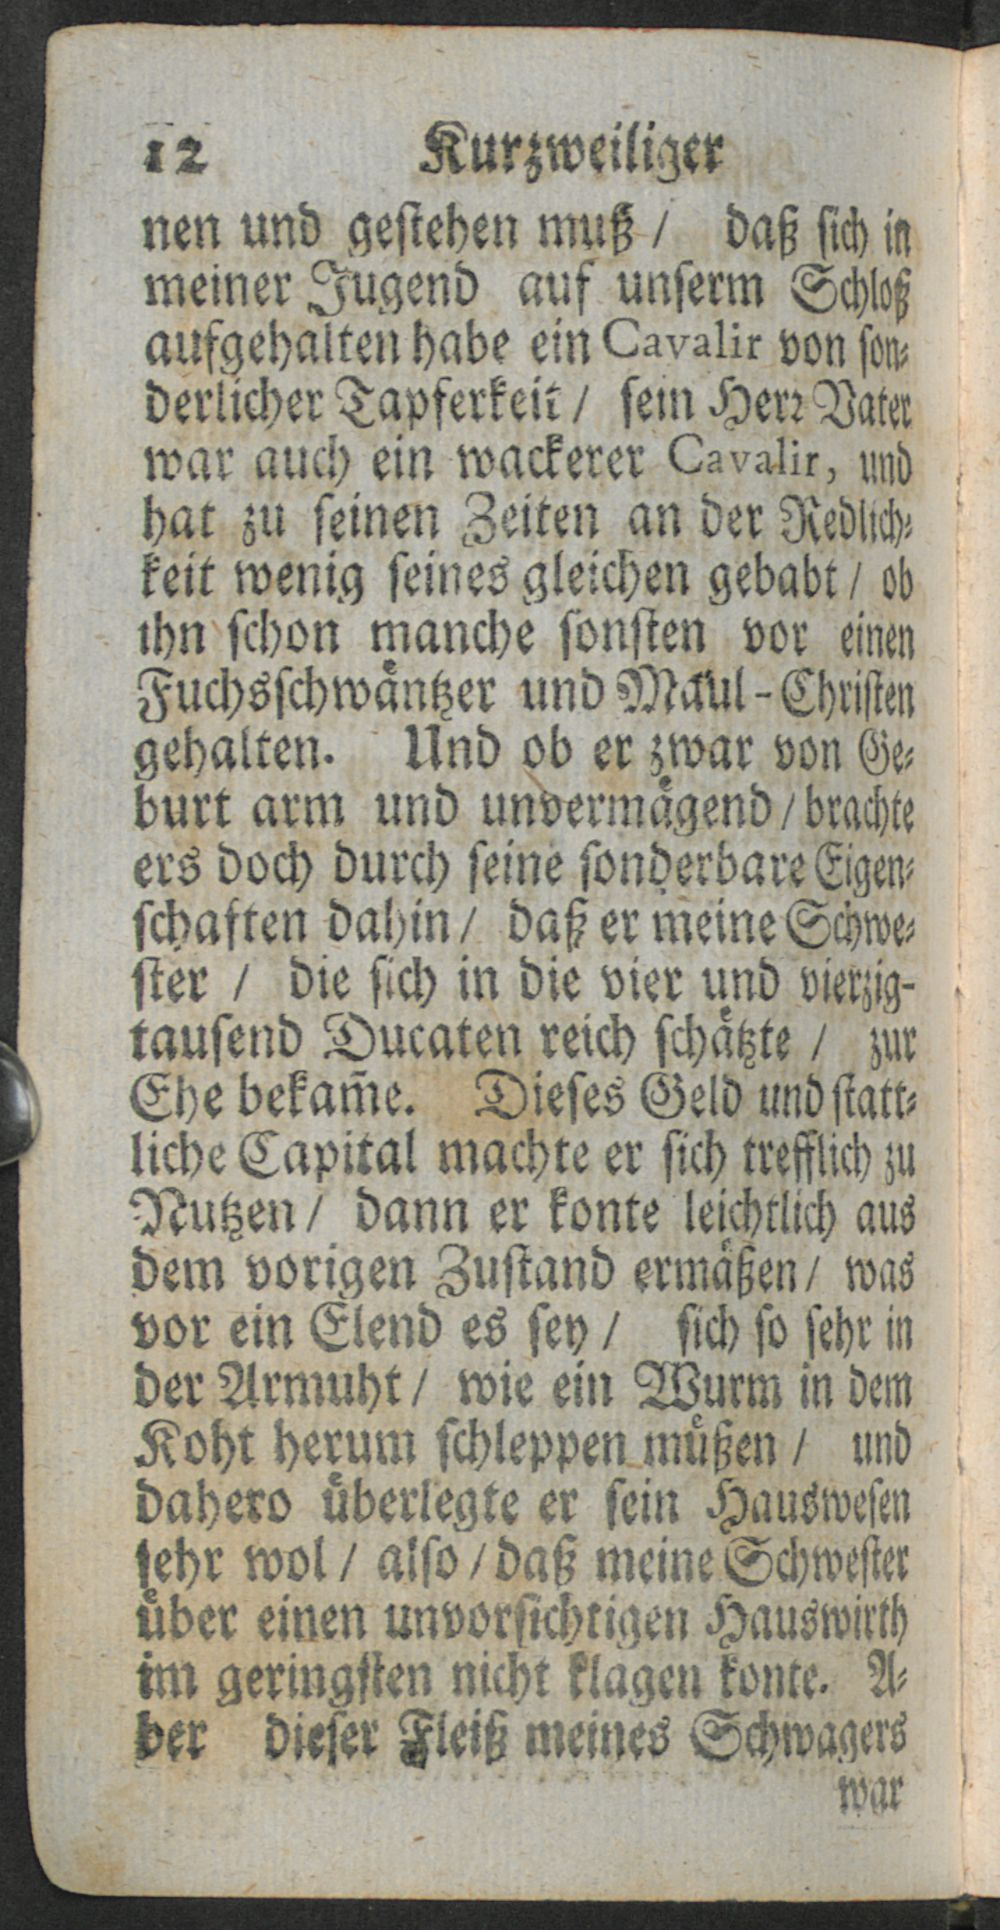 12 Kurzweiliger
nen und geſtehen muß / daß ſich in
meiner Jugend auf unſerm Schloß
aufgehalten habe ein Cavalir von ſon⸗
derlicher Tapferkeit / ſein Herꝛ Vater
war auch ein wackerer Cavalir, und
hat zu ſeinen Zeiten an der Redlich⸗
keit wenig ſeines gleichen gebabt / ob
ihn ſchon manche ſonſten vor einen
Fuchsſchwaͤntzer und Maul-Chriſten
gehalten. Und ob er zwar von Ge⸗
burt arm und unvermaͤgend / brachte
ers doch durch ſeine ſonderbare Eigen⸗
ſchaften dahin / daß er meine Schwe⸗
ſter / die ſich in die vier und vierzig-
tauſend Ducaten reich ſchaͤtzte / zur
Ehe bekam̃e. Dieſes Geld und ſtatt⸗
liche Capital machte er ſich trefflich zu
Nutzen / dann er konte leichtlich aus
dem vorigen Zuſtand ermaͤßen / was
vor ein Elend es ſey / ſich ſo ſehr in
der Armuht / wie ein Wurm in dem
Koht herum ſchleppen muͤßen / und
dahero uͤberlegte er ſein Hausweſen
ſehr wol / alſo / daß meine Schweſter
uͤber einen unvorſichtigen Hauswirth
im geringſten nicht klagen konte. A⸗
ber dieſer Fleiß meines Schwagers
war